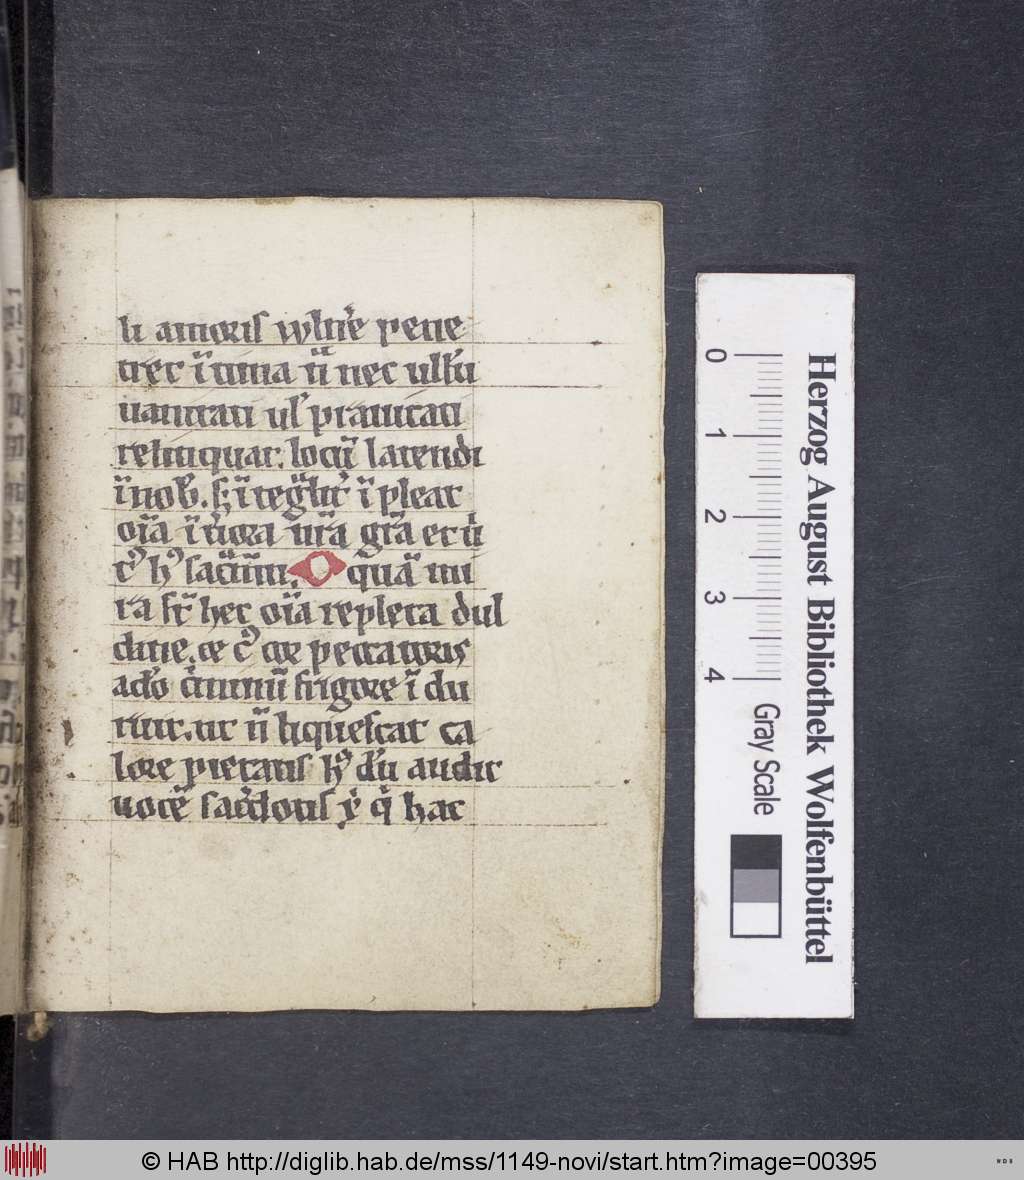 li amoris vvln̄e pene
tret ītima n̄ nec ullū
uanitati ul' prauitati
relinquat. locū latendi
ī nob̄. s; ī teg̃lit' ī pleat
oīa ī t'iora n̄r̄a gr̄a et ů
t' h' sac̄m̄m. O quā mi
ra st̄ hec oīa repleta dul
dine. ⁊e c' cor peccatoris
ad'o c̄minū frigore ī du
ruit. ut n̄ liquescat ca
lore pietatis h' dū audit
uocē sac̄dotis x̄ q̄ hac
Herzog August Bibliothek Wolfenbüttel
0 1 2 3 4
Gray Scale
© HAB http://diglib.hab.de/mss/1149-novi/start.htm?image=00395